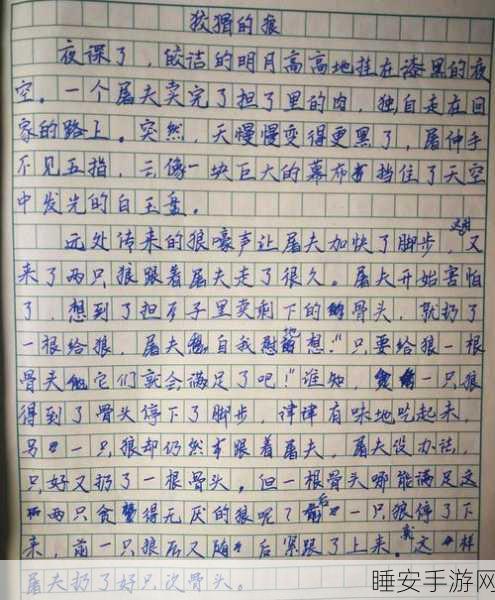 狡猾的狼
夜深了，皎洁的明月高高地挂在漆黑的夜
空。一个屠夫卖完了担子里的肉，独自走在回
家的路上。突然，天慢慢变得更黑了，屠伸手
不见五指，云像一块巨大的幕布挡住了天空
中发光的白玉盘。
远处传来的狼嚎声让屠夫加快了脚步，又
来了两只狼跟着屠夫走了很久。屠夫开始害怕
了，想到了担子里卖剩下的骨头，就扔了
一根给狼，屠夫自我慰地想："只要给狼一根
骨头它们就会满足了吧！"谁知，一只狼
得到了骨头停下了脚步，津津有味地吃起来，
另一只狼却仍然跟着屠夫，屠夫没办法，
只好又扔了一根骨头。但一根骨头哪能满足这
两只贪得无厌的狼呢？后一只狼停了下
来，前一只狼又随后紧跟了上来。就这样
屠夫扔了好几次骨头。
睡安手游网